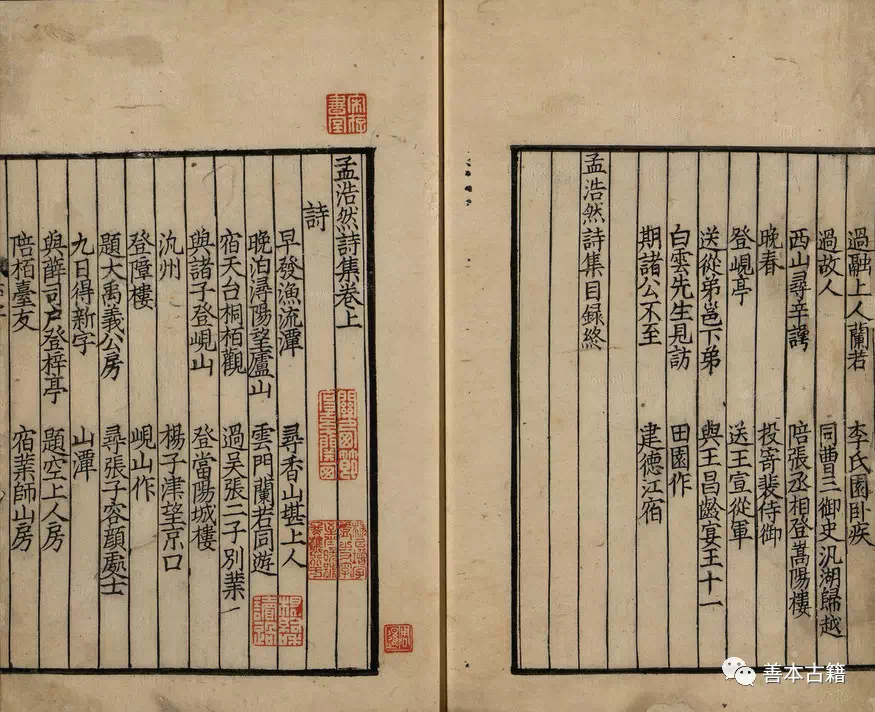 過融上人蘭若 李氏園卧疾
過故人 同曹三御史汎湖歸越
西山尋辛諤 陪張丞相登嵩陽樓
晚春 投寄裴侍御
登峴亭 送王宣從軍
送從弟邕下弟 與王昌齡宴王十一
白雲先生見訪 田園作
期諸公不至 建德江宿
孟浩然詩集目録終
孟浩然詩集卷上
詩
早發漁浦潭 尋香山堪上人
晚泊潯陽望廬山 雲門蘭若同遊
宿天台桐栢觀 過吴張二子別業
與諸子登峴山 登當陽城樓
氿州 楊子津望京口
登障樓 峴山作
題大禹義公房 尋張子容顔處士
九日得新字 山潭
與薛司户登梓亭 題空上人房
陪栢臺友 宿業師山房
宋存書室
善本古籍